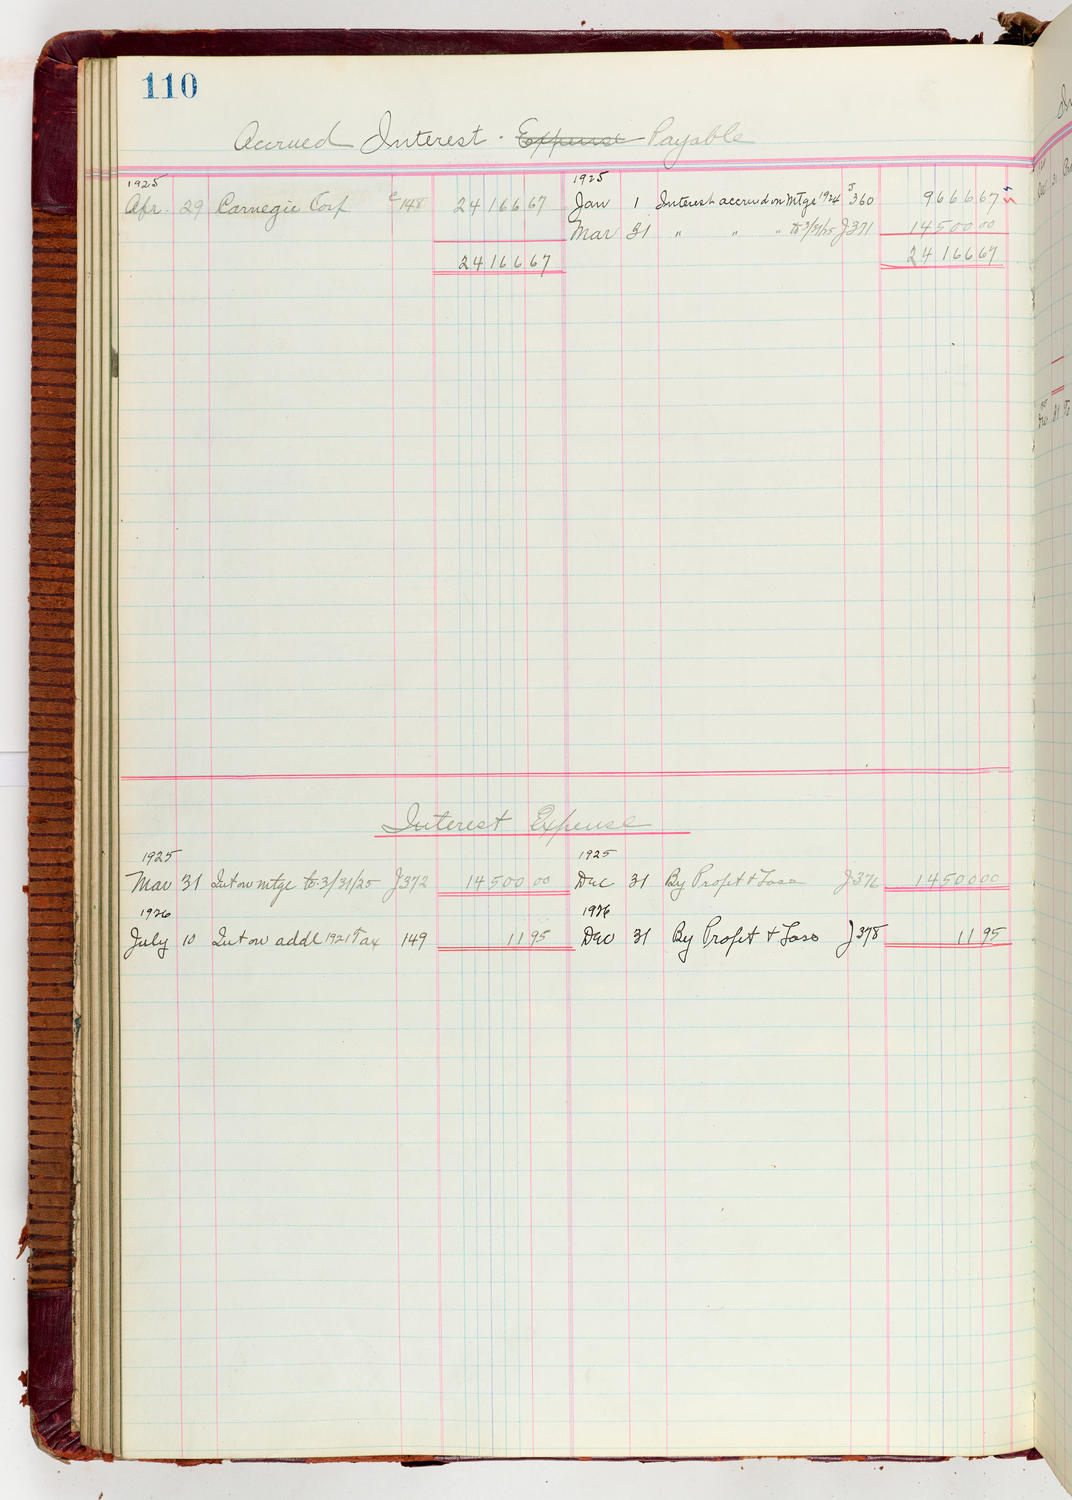 110
Accrued Interest · Expense Payable
1925 1925
Apr. 29 Carnegie Corp C148 24 166 67 Jan 1 Interest accrued on Mtge 1924 J360 9 666 67
Mar 31 " " " to 3/31/25 J371 14 500 00
24 166 67 24 166 67
Interest Expense
1925 1925
Mar 31 Int on mtge to 3/31/25 J372 14 500 00 Dec 31 By Profit & Loss J376 14 500 00
1926 1926
July 10 Int on addl 1921 Tax 149 11 95 Dec 31 By Profit & Loss J378 11 95